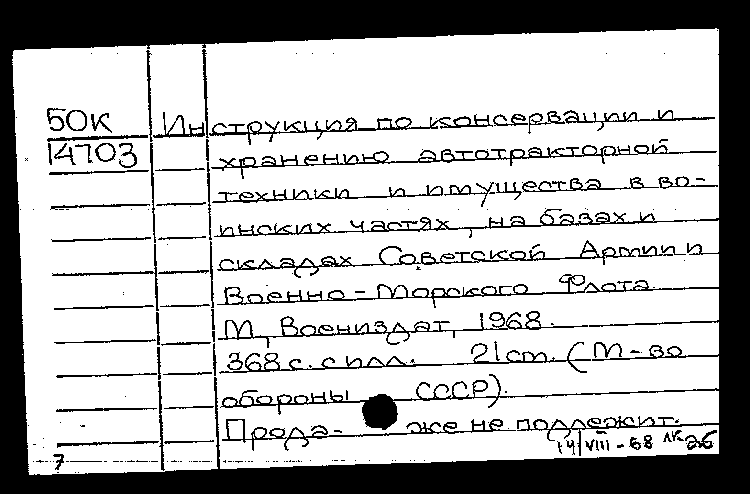 50к Инструкция по консервации и
14703 хранению автотракторной
техники и имущества в во-
инских частях, на базах и
складах Советской Армии и
Военно-Морского Флота
М, Воениздат, 1968.
368 с. с илл. 21 cm. (М-во
обороны СССР).
Прода- же не подлежит.
14/VIII-68 ЛК
7